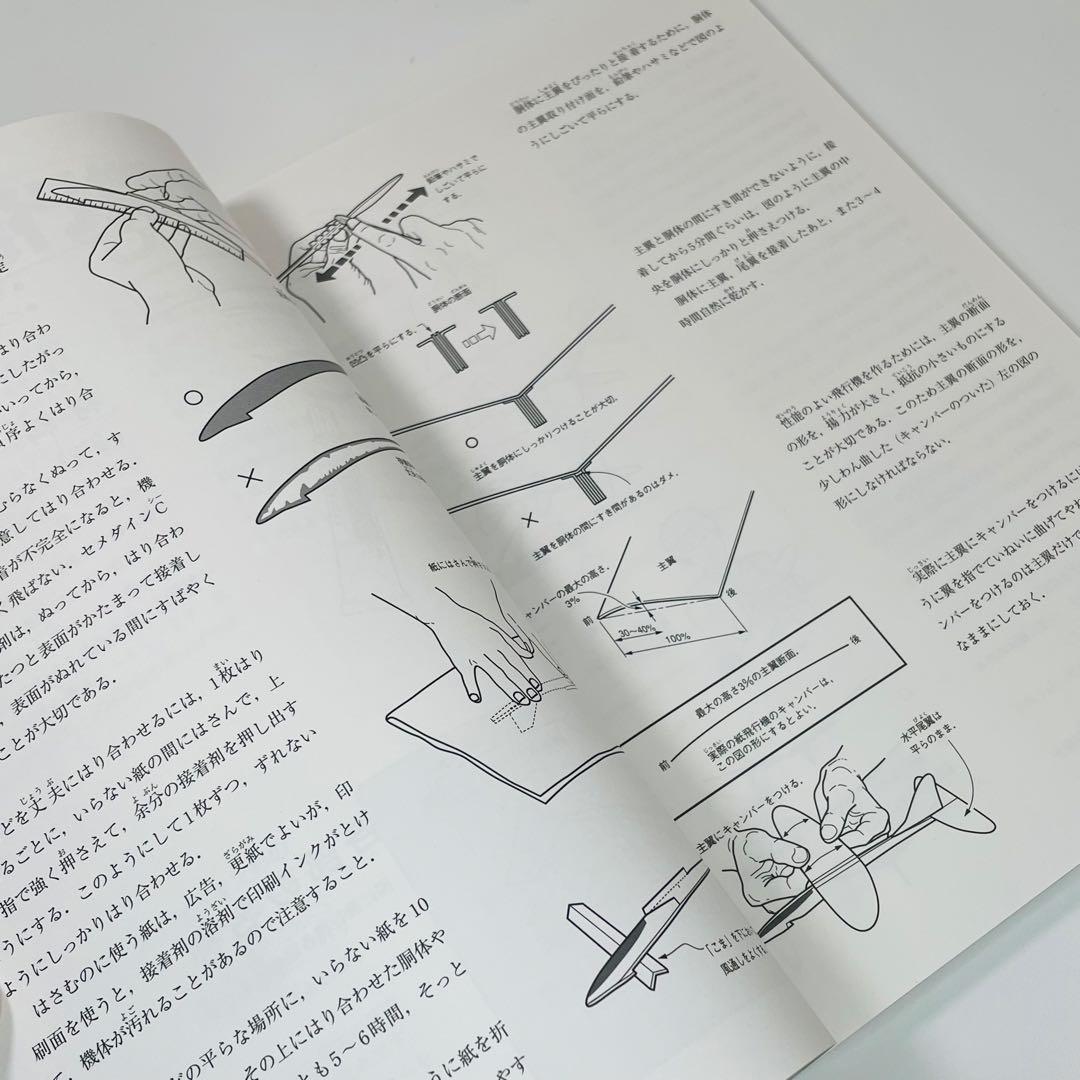 定
はり合わ
にしたがっ
いってから,
順序よくはり合
むらなくぬって, す
意してはり合わせる.
着が不完全になると, 機
く飛ばない. セメダインC
剤は, ぬってから, はり合わ
たつと表面がかたまって接着し
, 表面がぬれている間にすばやく
ことが大切である.
どを丈夫にはり合わせるには, 1枚はり
るごとに, いらない紙の間にはさんで, 上
指で強く押さえて, 余分の接着剤を押し出す
うにする. このようにして1枚ずつ, ずれない
ようにしっかりはり合わせる.
はさむのに使う紙は, 広告, 更紙でよいが, 印
刷面を使うと, 接着剤の溶剤で印刷インクがとけ
て, 機体が汚れることがあるので注意すること.
どの平らな場所に, いらない紙を10
その上にはり合わせた胴体や
とも5〜6時間, そっと
うに紙を折
やす
○
×
紙にはさんで
胴体に主翼をぴったりと接着するために, 胴体
の主翼取り付け面を, 鉛筆やハサミなどで図のよ
うにしごいて平らにする.
鉛筆やハサミで
しごいて平らに
する.
胴体の断面
凹凸を平らにする.
主翼と胴体の間にすき間ができないように, 接
着してから5分間ぐらいは, 図のように主翼の中
央を胴体にしっかりと押さえつける.
胴体に主翼, 尾翼を接着したあと, また3〜4
時間自然に乾かす.
○
主翼を胴体にしっかりつけることが大切.
×
主翼を胴体の間にすき間があるのはダメ.
性能のよい飛行機を作るためには, 主翼の断面
の形を, 揚力が大きく, 抵抗の小さいものにする
ことが大切である. このため主翼の断面の形を,
少しわん曲した (キャンバーのついた) 左の図の
形にしなければならない.
主翼
ャンバーの最大の高さ.
3%
前
後
30〜40%
100%
実際に主翼にキャンバーをつけるには
うに翼を指でていねいに曲げてやれ
ンバーをつけるのは主翼だけで
なままにしておく.
最大の高さ3%の主翼断面.
前
後
実際の紙飛行機のキャンバーは,
この図の形にするとよい.
水平尾翼は
平らのまま.
主翼にキャンバーをつける.
「こま」を下に
風通しをよく